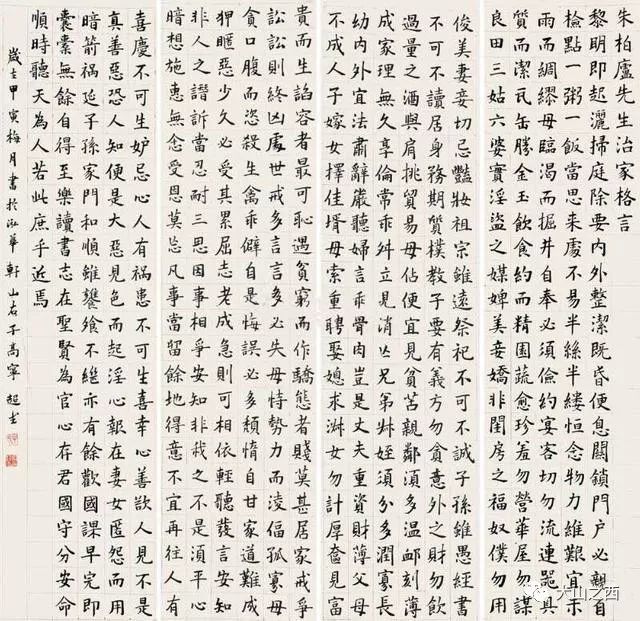 朱柏廬先生治家格言
黎明即起灑掃庭除要內外整潔既昏便息關鎖門户必親自
檢點一粥一飯當思来處不易半絲半縷恒念物力維艱宜未
雨而綢繆毋臨渴而掘井自奉必須儉約宴客切勿流連器具
質而潔瓦缶勝金玉飲食約而精園蔬愈珍羞勿營華屋勿謀
良田三姑六婆實淫盗之媒婢美妾嬌非閨房之福奴僕勿用
俊美妻妾切忌豔妝祖宗雖遠祭祀不可不誠子孫雖愚經書
不可不讀居身務期質樸教子要有義方勿貪意外之財勿飲
過量之酒與肩挑貿易毋佔便宜見貧苦親鄰須多温卹刻薄
成家理無久享倫常乖舛立見消亡兄弟叔姪須多分潤寡長
幼內外宜法肅辭嚴聽婦言乖骨肉豈是丈夫重資財薄父母
不成人子嫁女擇佳壻毋索重聘娶媳求淑女勿計厚奩見富
貴而生諂容者最可恥遇貧窮而作驕態者賤莫甚居家戒爭
訟訟則終凶處世戒多言言多必失毋恃勢力而凌偪孤寡毋
貪口腹而恣殺生禽乖僻自是悔誤必多頽惰自甘家道難成
狎暱惡少久必受其累屈志老成急則可相依輕聽發言安知
非人之譖訴當忍耐三思因事相爭安知非我之不是須平心
暗想施惠無念受恩莫忘凡事當留餘地得意不宜再往人有
喜慶不可生妒忌心人有禍患不可生喜幸心善欲人見不是
真善惡恐人知便是大惡見色而起淫心報在妻女匿怨而用
暗箭禍延子孫家門和順雖饔飧不繼亦有餘歡國課早完即
囊橐無餘自得至樂讀書志在聖賢為官心存君國守分安命
順時聽天為人若此庶乎近焉
歲在甲寅梅月書於泓華軒 山右子高寧超書
大山之西